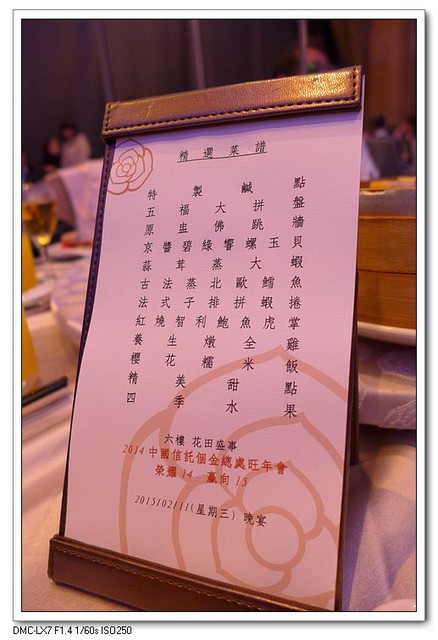 精選菜譜
特製鹹點
五福大拼盤
原盅佛跳牆
京醬碧綠響螺玉貝
蒜茸蒸大蝦
古法蒸北歐鱈魚
法式子排拼蝦捲
紅燒智利鮑魚虎掌
養生燉全雞
櫻花糯米飯
精美甜點
四季水果
六樓 花田盛事
2014 中國信託個金總處旺年會
榮耀 14 贏向 15
2015/02/11(星期三) 晚宴
DMC-LX7 F1.4 1/60s ISO250